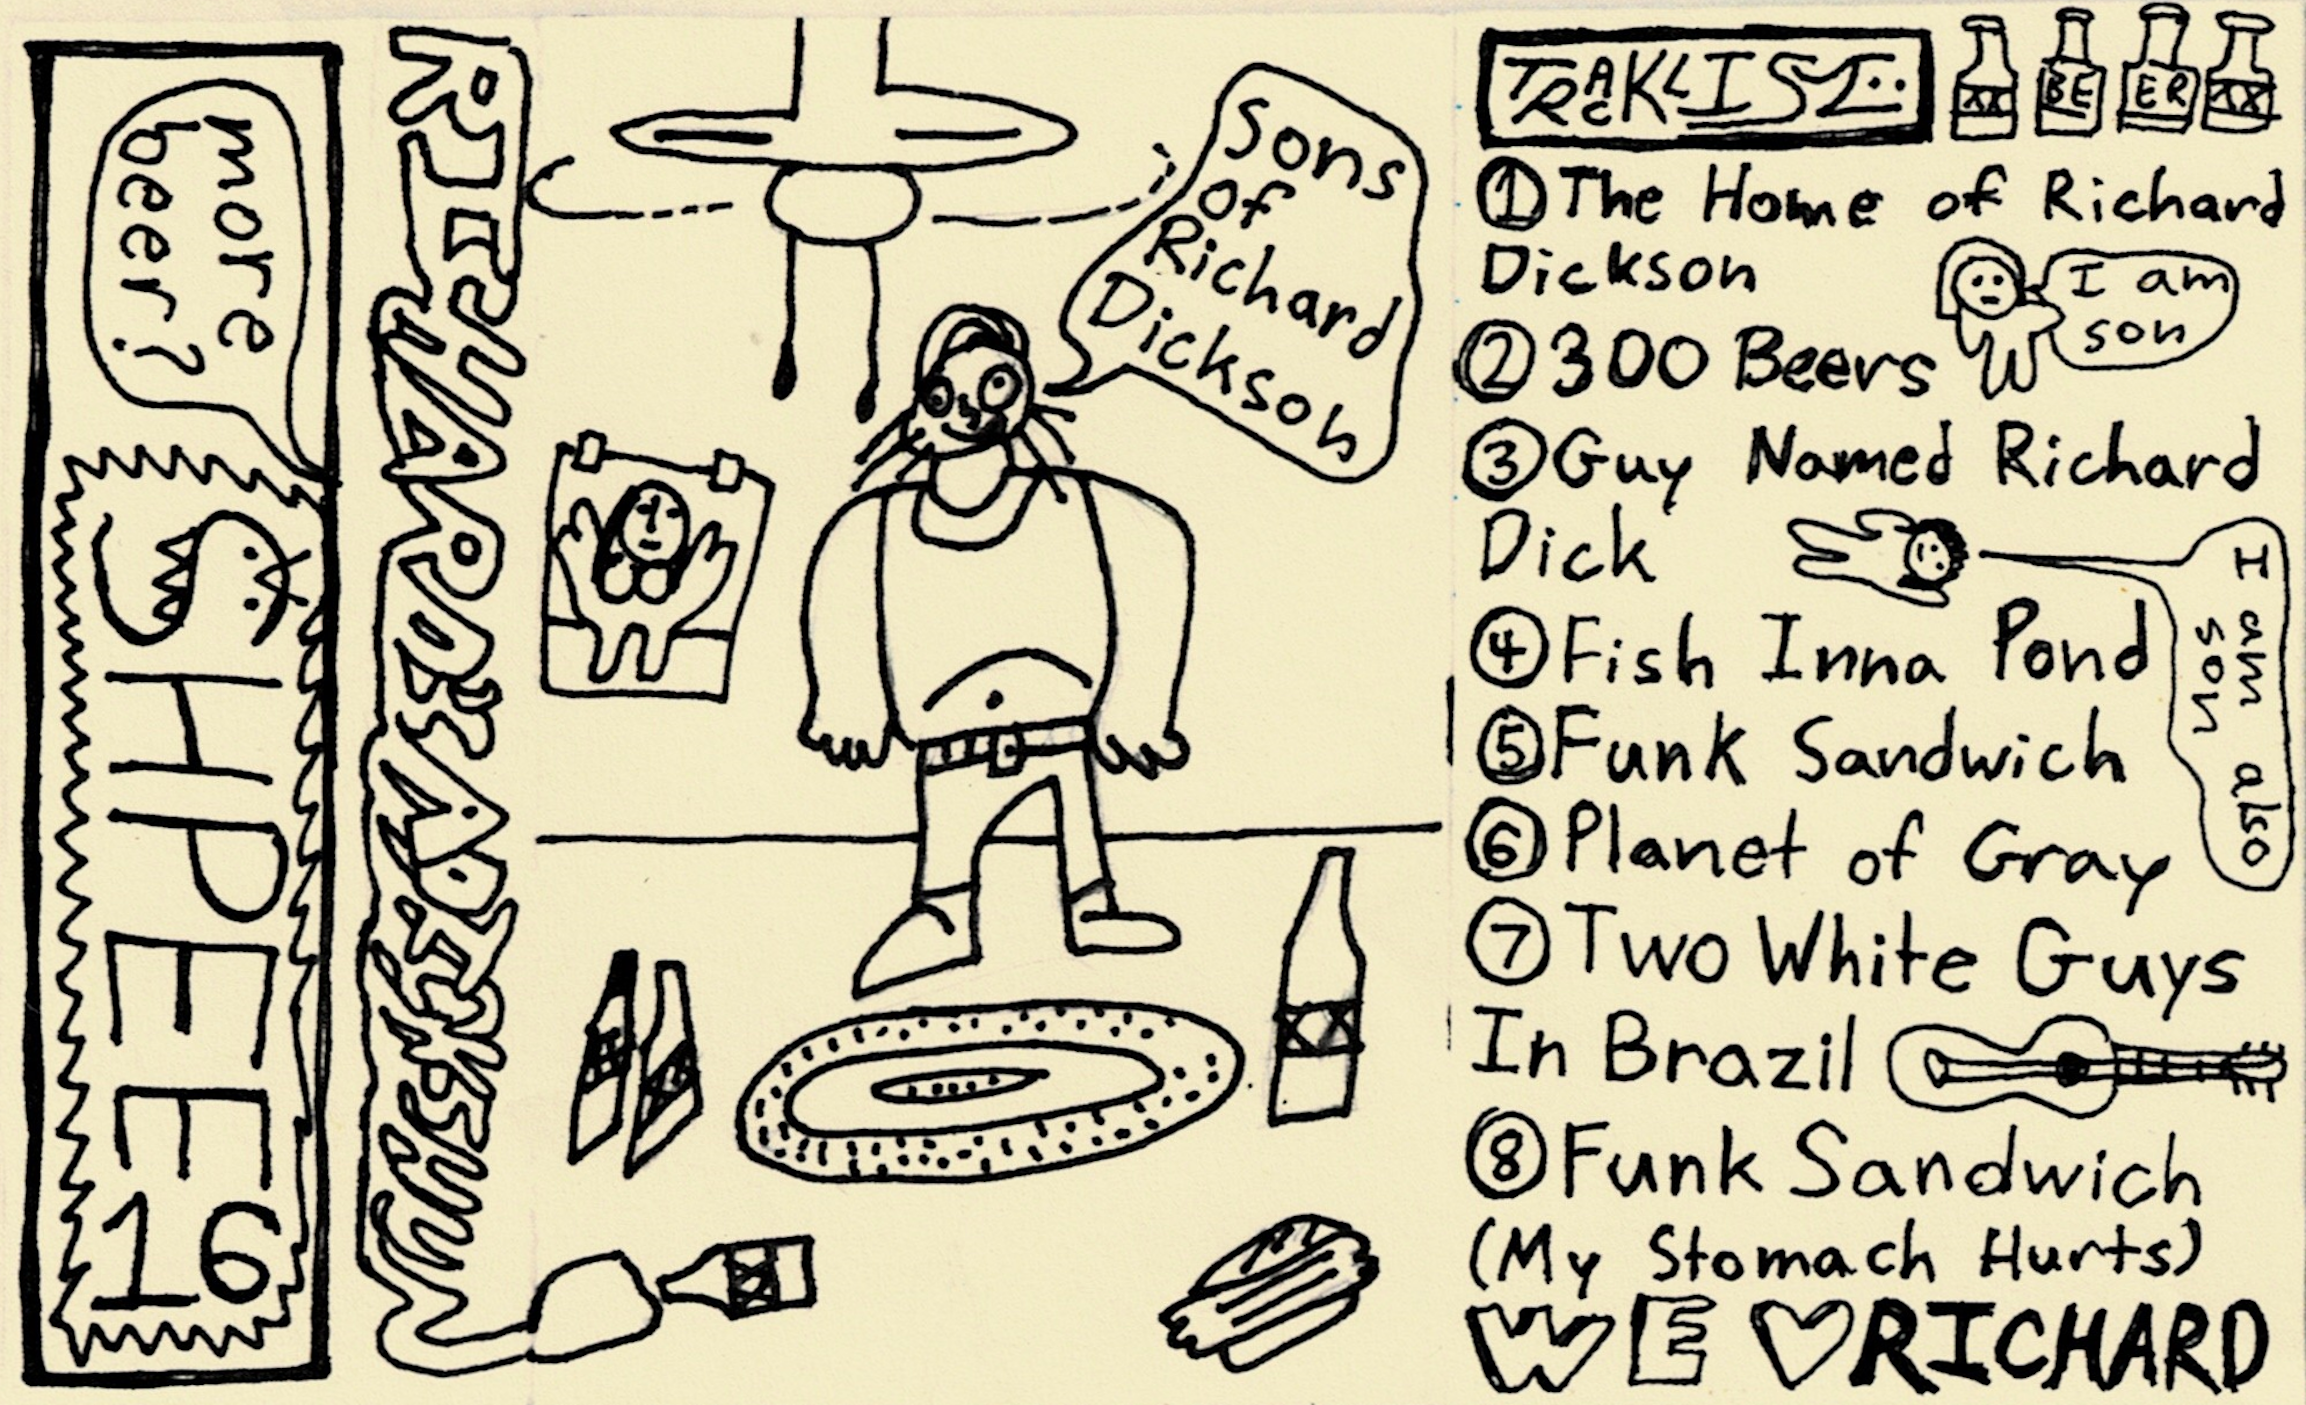 more
beer?
SHPEE 16
RICHARD
Sons
of
Richard
Dickson
XX
TRACKLIST:
XX BE ER XX
① The Home of Richard
Dickson
I am
son
② 300 Beers
③ Guy Named Richard
Dick
I am also
son
④ Fish Inna Pond
⑤ Funk Sandwich
⑥ Planet of Gray
⑦ Two White Guys
In Brazil
⑧ Funk Sandwich
(My Stomach Hurts)
WE ♡ RICHARD